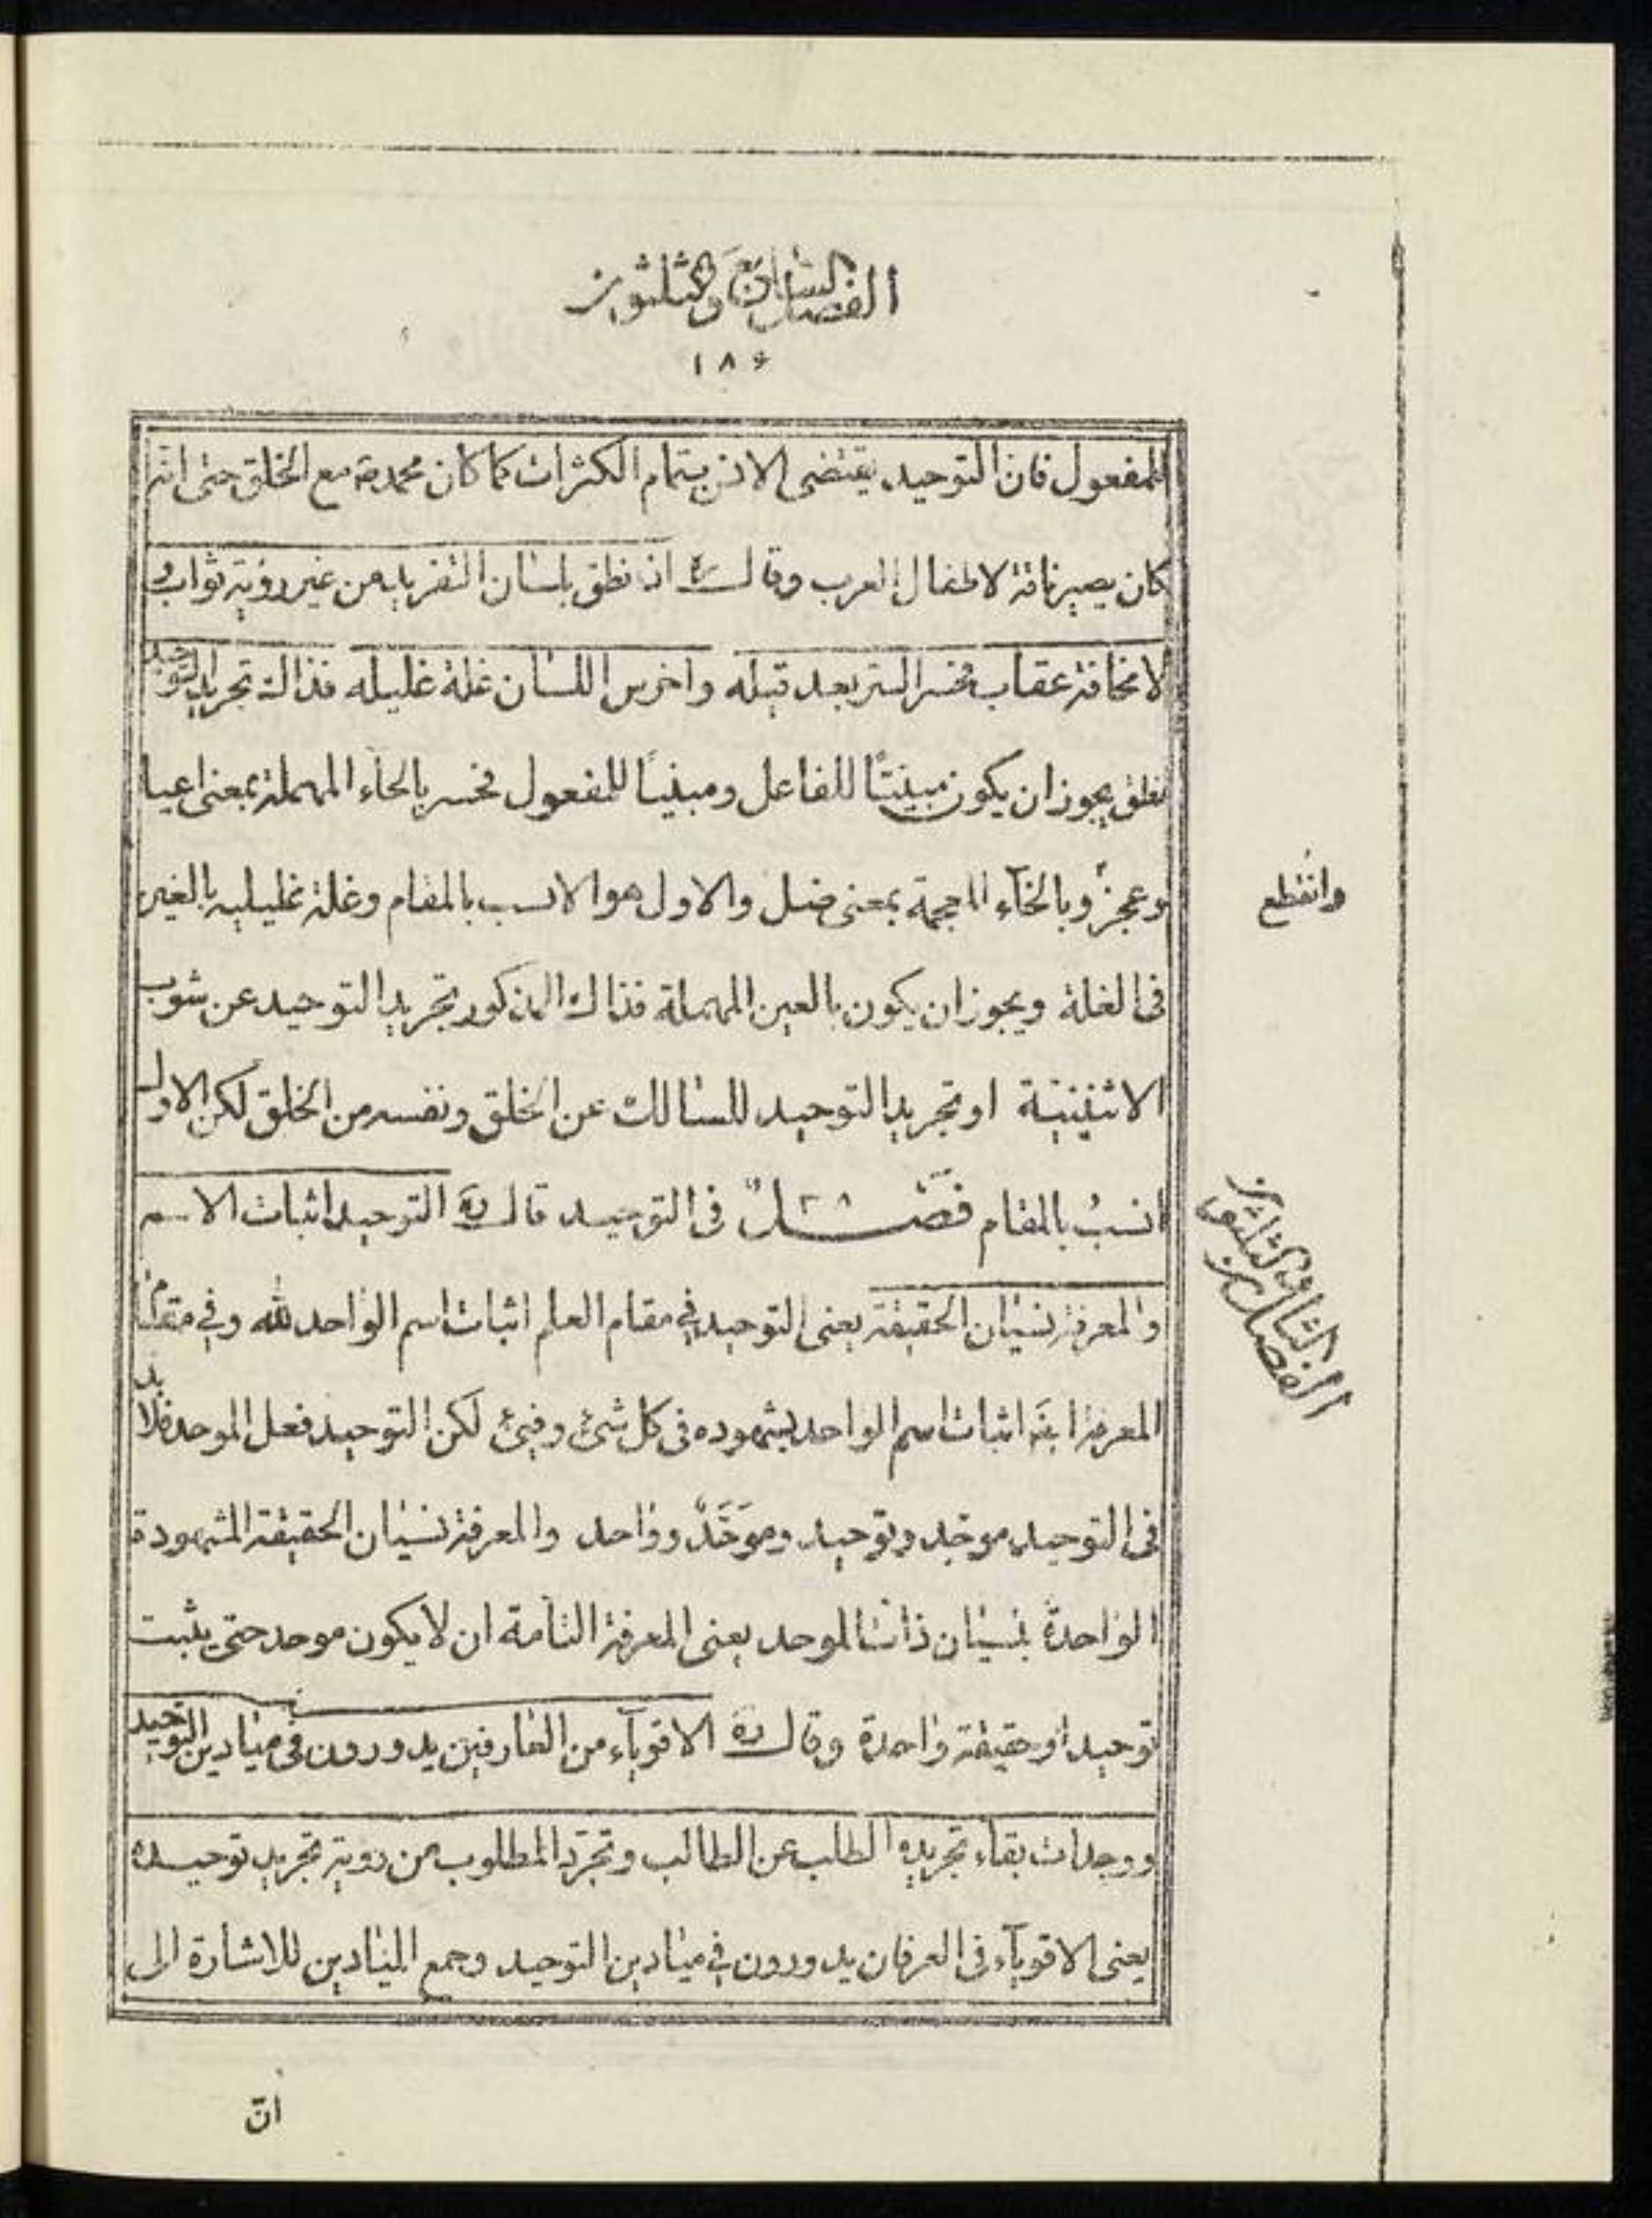 الفصل السابع والثلثون
١٨۶
للمفعول فان التوحيد يقتضى الانس بتمام الكثرات كما كان محمد ص مع الخلق حتى انه
كان يصير ناقة لاطفال العرب وقال ره اذ نطق بلسان التفريد من غير رؤية ثواب و
لا مخافة عقاب فحسر السر بعد قبله واخرس اللسان غلة غليله فذالك تجريد التوحيد
نطق يجوز ان يكون مبنيّا للفاعل ومبنيّا للمفعول فحسر بالحاء المهملة بمعنى اعيا
وعجز وبالخاء المعجمة بمعنى ضل والاول هو الانسب بالمقام وغلة غليليه بالغين
وانقطع
فى الغلة ويجوز ان يكون بالعين المهملة فذاك المذكور تجريد التوحيد عن شوب
الاثنينية او تجريد التوحيد للسالك عن الخلق ونفسه من الخلق لكن الاول
انسب بالمقام فصل ٣٨ فى التوحيد قال ره التوحيد اثبات الاسم
الفصل الثامن والثلثون
والمعرفة نسيان الحقيقة يعنى التوحيد في مقام العلم اثبات اسم الواحد لله وفي مقام
المعرفة ايضَ اثبات اسم الواحد بشهوده فى كل شئ وفيئ لكن التوحيد فعل الموحد فلا بد
فى التوحيد موحِّد وتوحيد وموحَّدٌ وواحد والمعرفة نسيان الحقيقة المشهودة
الواحدة بنسيان ذات الموحد يعنى المعرفة التامة ان لا يكون موحد حتى يثبت
توحيد او حقيقة واحدة وقال ره الاقوياء من العارفين يدورون فى ميادين التوحيد
ووجدات بقاء تجريده الطلب عن الطالب وتجرّد المطلوب من روية تجريد توحيده
يعنى الاقوياء فى العرفان يدورون في ميادين التوحيد وجمع الميادين للاشارة الى
انّ